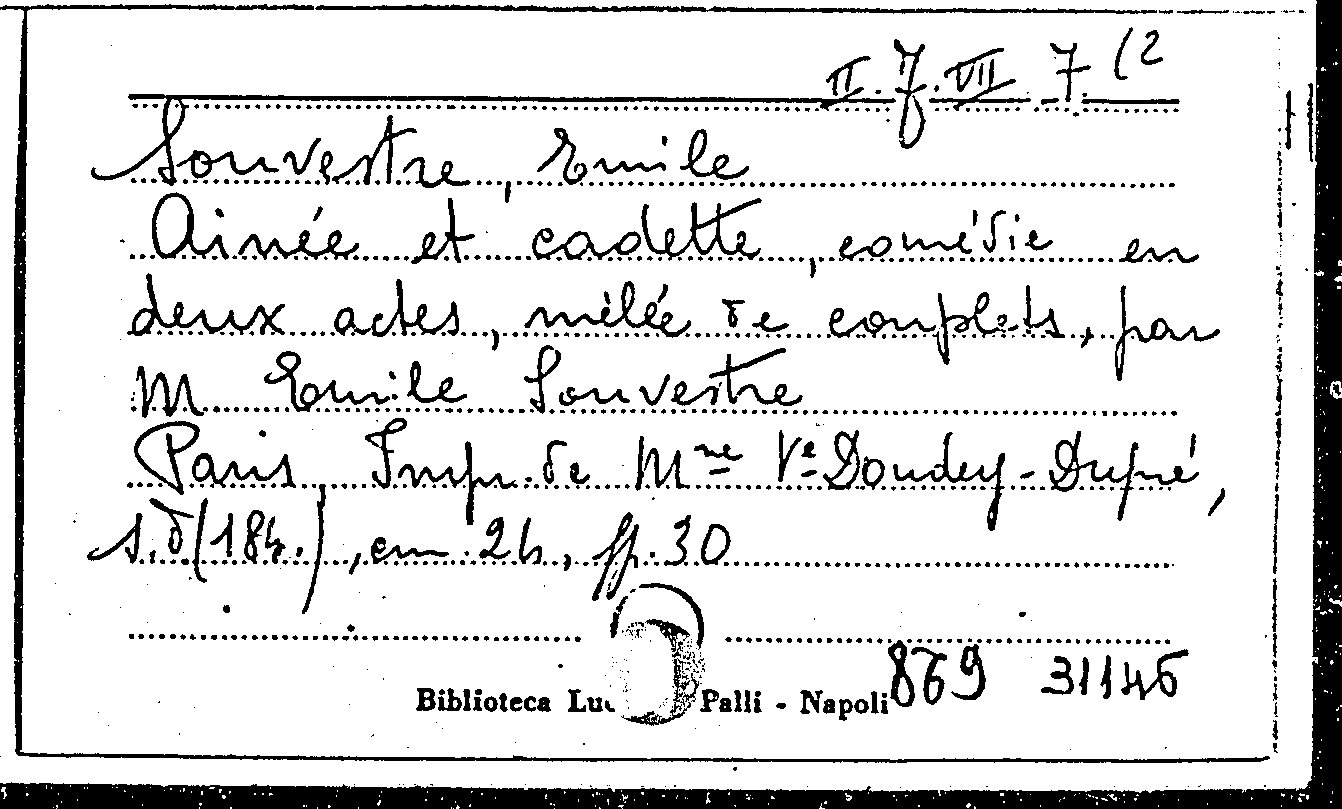 II. 7. VII 7 (2
Souvestre, Emile
Ainée et cadette, comédie en
deux actes, mêlée de couplets, par
M Emile Souvestre
Paris, Imp. de Mme Ve Doudey-Dupré,
s.d (184.), cm. 24, pp. 30
Biblioteca Palli - Napoli
869 31145